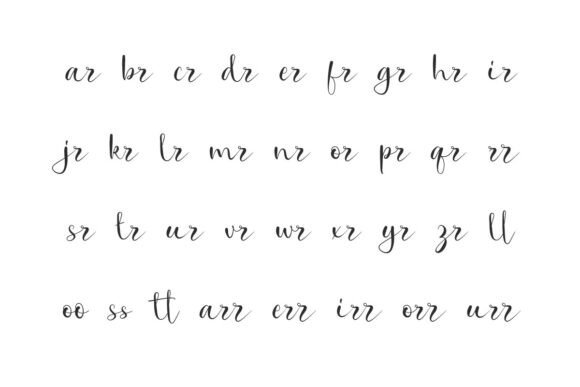 ar br cr dr er fr gr hr ir
jr kr lr mr nr or pr qr rr
sr tr ur vr wr xr yr zr ll
oo ss tt arr err irr orr urr